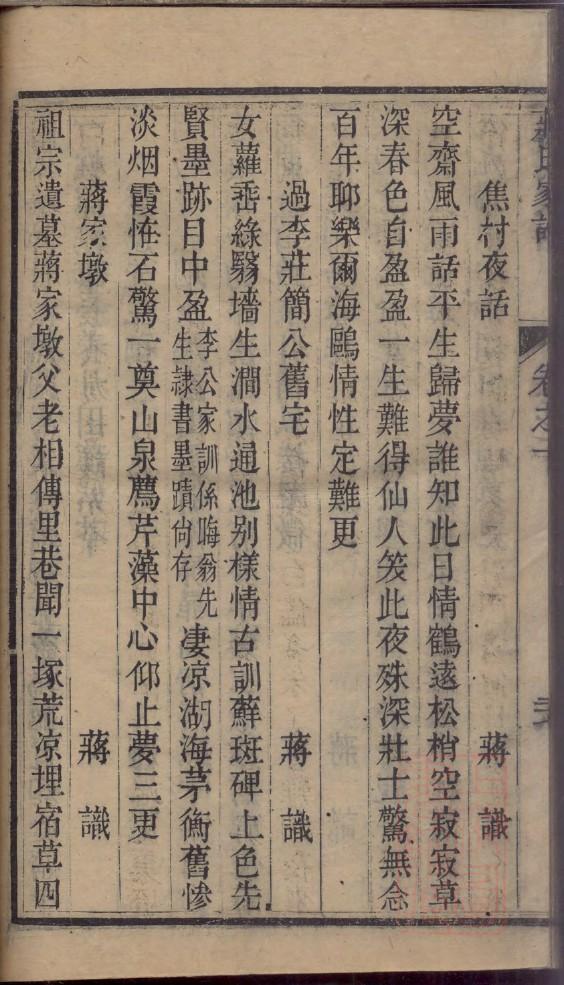 焦村夜話
蔣識
空齋風雨話平生歸夢誰知此日情鶴遠松梢空寂寂草
深春色自盈盈一生難得仙人筊此夜殊深壯士驚無念
百年耶樂爾海鷗情性定難更
過李莊簡公舊宅
蔣識
女蘿垂綠翳墻生澗水通池别樣情古訓蘚斑碑上色先
賢墨跡目中盈
李公家訓係晦翁先
生隷書墨蹟尙存
凄凉湖海茅衡舊慘
淡烟霞恠石驚一奠山泉薦芹藻中心仰止夢三更
蔣家墩
蔣識
祖宗遺墓蔣家墩父老相傳里巷聞一塚荒凉埋宿草四